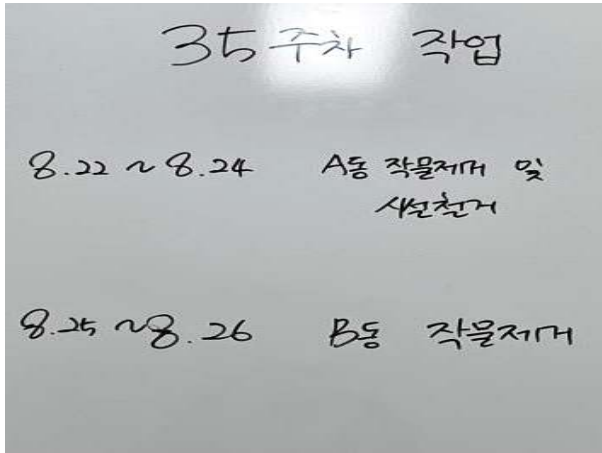 35주차 작업
8.22 ~ 8.24 A동 작물제거 및
시설철거
8.25 ~ 8.26 B동 작물제거